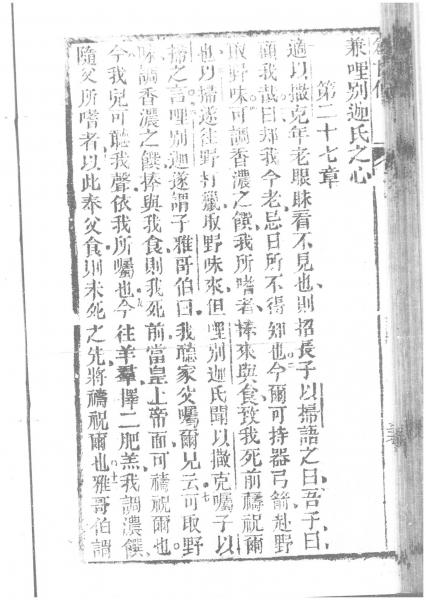 兼哩別迦氏之心
第二十七章
適以撒克年老眼昧看不見也則招長子以掃語之曰吾子曰
顧我哉曰邦我今老忌日所不得知也今爾可持器弓箭赴野
取野味可調香濃之饌我所嗜者捧來與食致我死前禱祝爾
也以掃遂往野打獵取野味來但哩別迦氏聞以撒克囑子以
掃之言哩別迦遂謂子雅哥伯曰我聽家父囑爾兄云可取野
味調香濃之饌捧與我食則我死前當皇上帝面可禱祝爾也
今我兒可聽我聲依我所囑也今往羊羣擇二肥羔我調濃饌
隨父所嗜者以此奉父食則未死之先將禱祝爾也雅哥伯謂